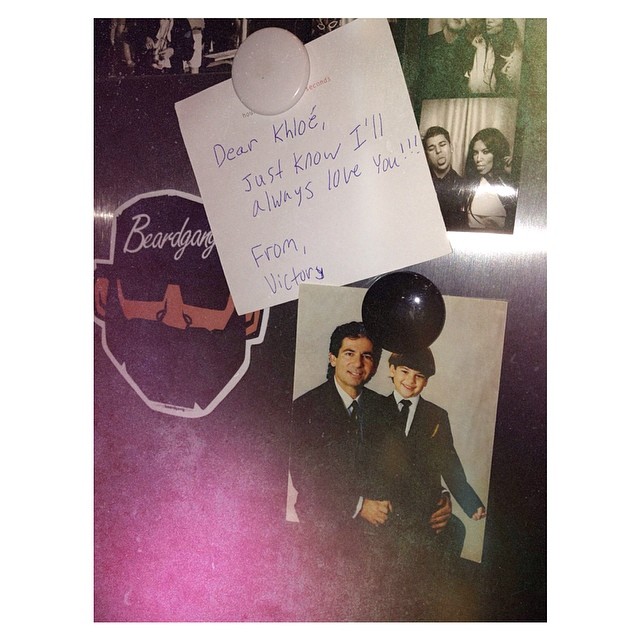 Dear Khloé,
Just know I'll
always love you!!!
From,
Victory
Beardgang